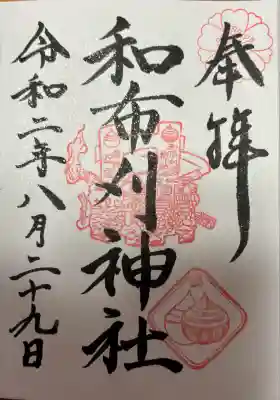 奉拝
和布刈神社
令和二年八月二十九日